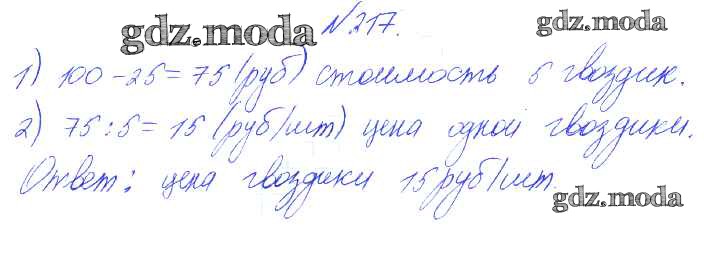 gdz.moda №217. gdz.moda
1) 100-25=75 (руб) стоимость 5 гвоздик.
2) 75:5=15 (руб/шт) цена одной гвоздики.
Ответ: цена гвоздики 15 руб/шт.
gdz.moda